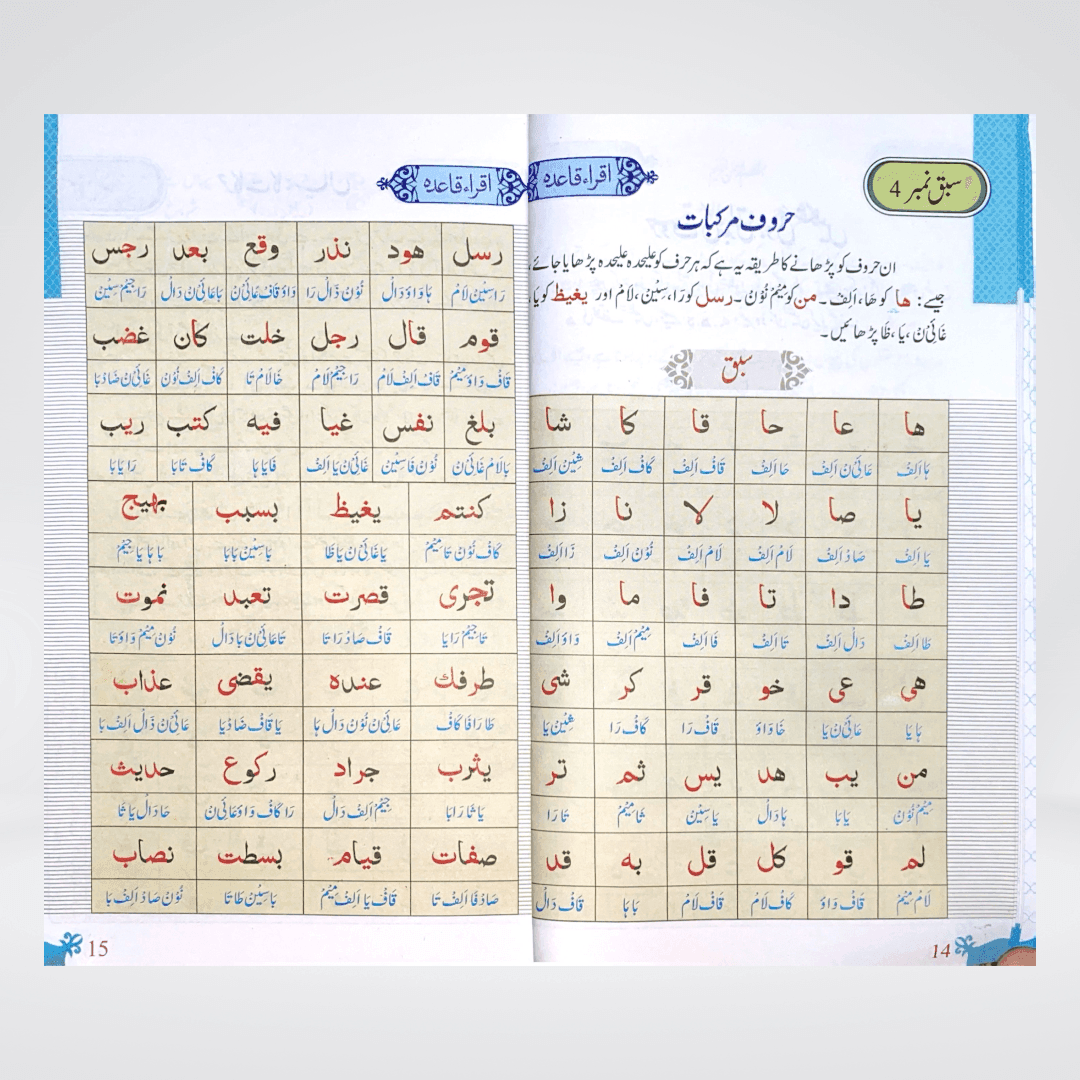 سبق نمبر 4
اقراء قاعدہ
حروف مرکبات
ان حروف کو پڑھانے کا طریقہ یہ ہے کہ ہر حرف کو علیحدہ علیحدہ پڑھایا جائے،
جیسے: ھا کو ھَا، اَلِفْ۔ من کو مِیْمْ نُوْنْ۔ رسل کو رَا، سِیْنْ، لَامْ اور یغیظ کو یَا،
غَائِیْ نْ، یَا، ظَا پڑھائیں۔
سبق
ھا عا حا قا كا شا
ہَا اَلِفْ عَائِیْ نْ اَلِفْ حَا اَلِفْ قَافْ اَلِفْ گَافْ اَلِفْ شِیْنْ اَلِفْ
یا صا لا لا نا زا
یَا اَلِفْ صَادْ اَلِفْ لَامْ اَلِفْ لَامْ اَلِفْ نُوْنْ اَلِفْ زَا اَلِفْ
طا دا تا فا ما وا
طَا اَلِفْ دَالْ اَلِفْ تَا اَلِفْ فَا اَلِفْ مِیْمْ اَلِفْ وَاوْ اَلِفْ
ھی عی خو قر کر شی
ہَا یَا عَائِیْ نْ یَا خَا وَاوْ قَافْ رَا گَافْ رَا شِیْنْ یَا
من یب ھد یس ثم تر
مِیْمْ نُوْنْ یَا بَا ہَا دَالْ یَا سِیْنْ ثَا مِیْمْ تَا رَا
لم قو کل قل به قد
لَامْ مِیْمْ قَافْ وَاوْ گَافْ لَامْ قَافْ لَامْ بَا ہَا قَافْ دَالْ
14
اقراء قاعدہ
رسل ھود نذر وقع بعد رجس
رَا سِیْنْ لَامْ ہَا وَاوْ دَالْ نُوْنْ ذَالْ رَا وَاوْ قَافْ عَائِیْ نْ بَا عَائِیْ نْ دَالْ رَا جِیْمْ سِیْنْ
قوم قال رجل خلت کان غضب
قَافْ وَاوْ مِیْمْ قَافْ اَلِفْ لَامْ رَا جِیْمْ لَامْ خَا لَامْ تَا کَافْ اَلِفْ نُوْنْ غَائِیْ نْ ضَادْ بَا
بلغ نفس غیا فیه کتب ریب
بَا لَامْ غَائِیْ نْ نُوْنْ فَا سِیْنْ غَائِیْ نْ یَا اَلِفْ فَا یَا ہَا گَافْ تَا بَا رَا یَا بَا
کنتم یغیظ بسبب بھیج
گَافْ نُوْنْ تَا مِیْمْ یَا غَائِیْ نْ یَا ظَا بَا سِیْنْ بَا بَا بَا ہَا یَا جِیْمْ
تجری قصرت تعبد نموت
تَا جِیْمْ رَا یَا قَافْ صَادْ رَا تَا تَا عَائِیْ نْ بَا دَالْ نُوْنْ مِیْمْ وَاوْ تَا
طرفك عندہ یقضی عذاب
طَا رَا فَا گَافْ عَائِیْ نْ نُوْنْ دَالْ ہَا یَا قَافْ ضَادْ یَا عَائِیْ نْ ذَالْ اَلِفْ بَا
یثرب جراد رکوع حدیث
یَا ثَا رَا بَا جِیْمْ رَا اَلِفْ دَالْ رَا گَافْ وَاوْ عَائِیْ نْ حَا دَالْ یَا ثَا
صفات قیام بسطت نصاب
صَادْ فَا اَلِفْ تَا قَافْ یَا اَلِفْ مِیْمْ بَا سِیْنْ طَا تَا نُوْنْ صَادْ اَلِفْ بَا
15